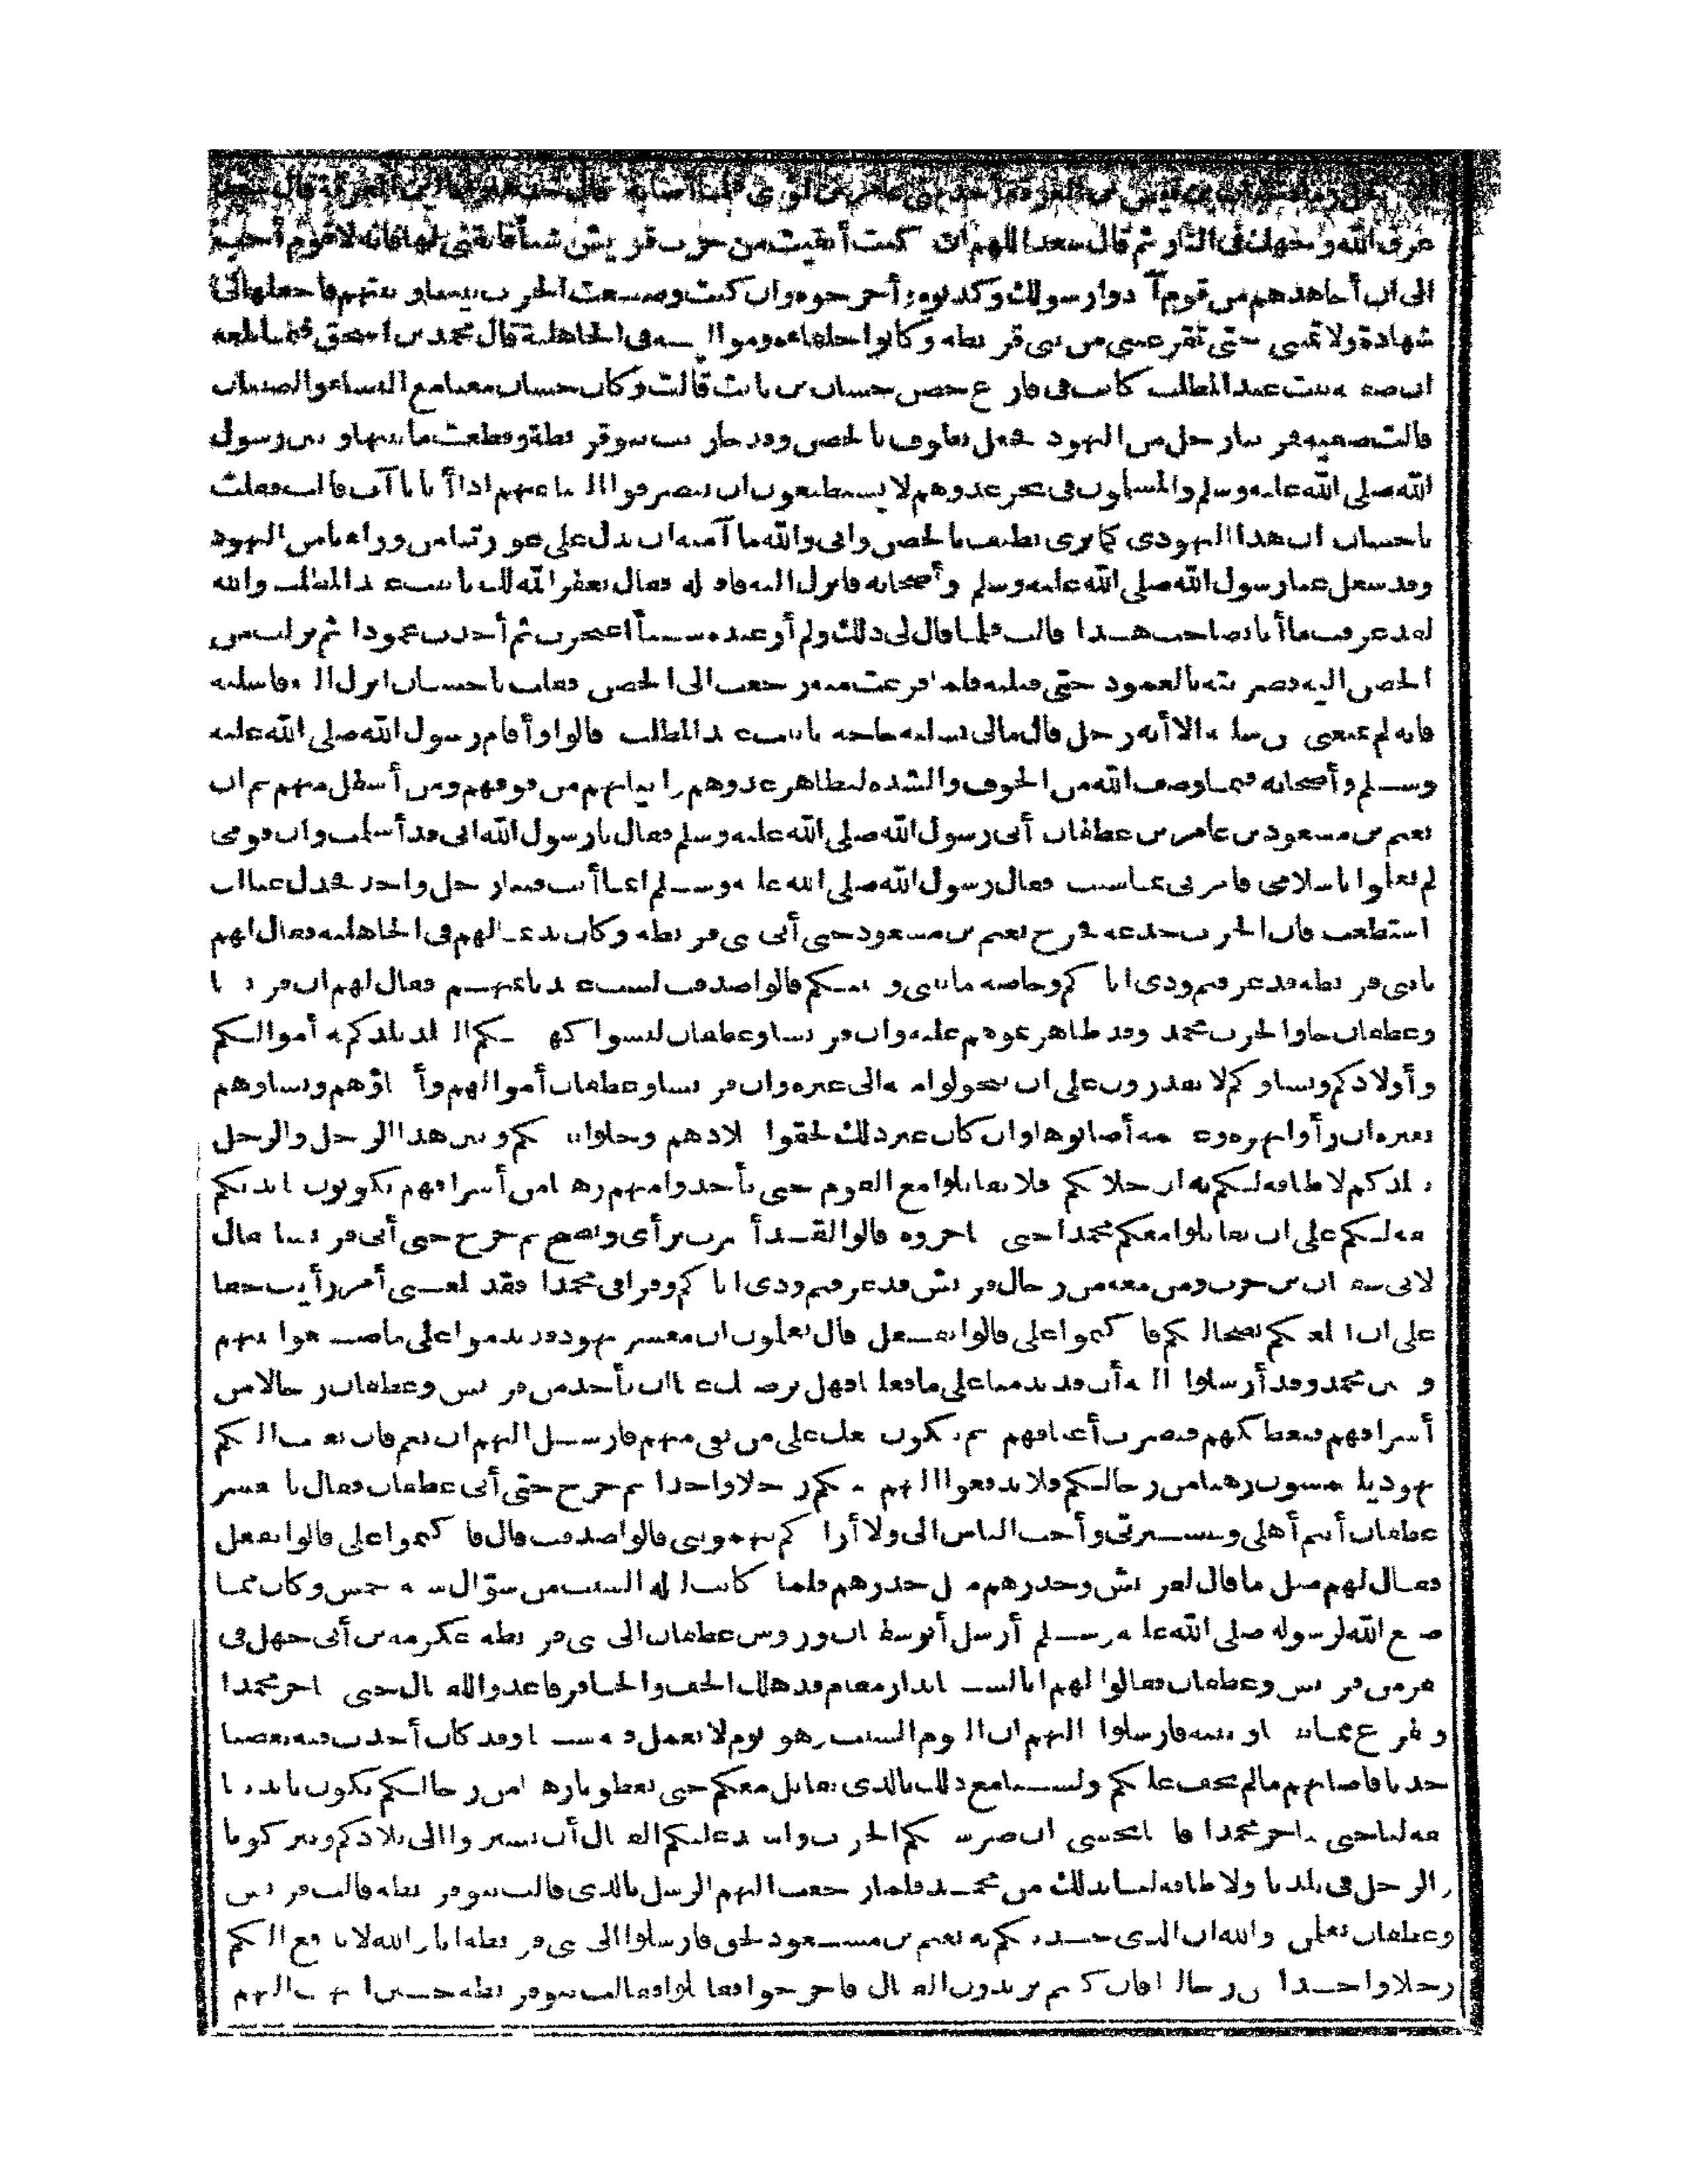 عرق الله وجهك فى النار ثم قال سعد اللهم ان كنت أبقيت من حرب قريش شيأ فابقنى لها فانه لا قوم أحب
الى ان أجاهدهم من قوم آذوا رسولك وكذبوه وأخرجوه وان كنت وضعت الحرب بيننا وبينهم فاجعلها لى
شهادة ولا تمتنى حتى تقر عينى من بنى قريظة وكانوا حلفاءه ومواليه فى الجاهلية قال محمد بن اسحق فيما بلغه
ان صفية بنت عبد المطلب كانت فى فارع حصن حسان بن ثابت قالت وكان حسان معنا مع النساء والصبيان
قالت صفية فمر بنا رجل من اليهود فجعل يطوف بالحصن وقد حاربت بنو قريظة وقطعت ما بينها وبين رسول
الله صلى الله عليه وسلم والمسلمون فى نحر عدوهم لا يستطيعون ان ينصرفوا الينا عنهم اذا أتانا آت قالت فقلت
ياحسان ان هذا اليهودى كما ترى يطيف بالحصن وانى والله ما آمنه ان يدل على عورتنا من وراءنا من اليهود
وقد شغل عنا رسول الله صلى الله عليه وسلم وأصحابه فانزل اليه فاقتله فقال يغفر الله لك يا بنت عبد المطلب والله
لقد عرفت ما أنا بصاحب هذا قالت فلما قال لى ذلك ولم أر عنده شيأ اعتجرت ثم أخذت عمودا ثم نزلت من
الحصن اليه فضربته بالعمود حتى قتلته فلما فرغت منه رجعت الى الحصن فقلت ياحسان انزل اليه فاسلبه
فانه لم يمنعنى من سلبه الا أنه رجل قال مالى بسلبه حاجة يا بنت عبد المطلب قالوا وأقام رسول الله صلى الله عليه
وسلم وأصحابه فيما وصف الله من الخوف والشدة لتظاهر عدوهم واتيانهم من فوقهم ومن أسفل منهم ثم ان
نعيم بن مسعود بن عامر بن غطفان أتى رسول الله صلى الله عليه وسلم فقال يا رسول الله انى قد أسلمت وان قومى
لم يعلموا باسلامى فامرنى بما شئت فقال رسول الله صلى الله عليه وسلم انما أنت فينا رجل واحد فخذل عنا ان
استطعت فان الحرب خدعة فخرج نعيم بن مسعود حتى أتى بنى قريظة وكان نديما لهم فى الجاهلية فقال لهم
يا بنى قريظة قد عرفتم ودى اياكم وخاصة ما بينى وبينكم قالوا صدقت لست عندنا بمتهم فقال لهم ان قريشا
وغطفان جاؤا لحرب محمد وقد ظاهرتموهم عليه وان قريشا وغطفان ليسوا كهيئتكم البلد بلدكم به أموالكم
وأولادكم ونساؤكم لا تقدرون على ان تحولوا منه الى غيره وان قريشا وغطفان أموالهم وأبناؤهم ونساؤهم
بغيره ان رأوا نهزة وغنيمة أصابوها وان كان غير ذلك لحقوا ببلادهم وخلوا بينكم وبين هذا الرجل والرجل
ببلدكم لا طاقة لكم به ان خلا بكم فلا تقاتلوا مع القوم حتى تأخذوا منهم رهنا من أشرافهم يكونون بايديكم
ثقة لكم على ان يقاتلوا معكم محمدا حتى تناجزوه قالوا لقد أشرت برأى ونصح ثم خرج حتى أتى قريشا فقال
لابى سفيان بن حرب ومن معه من رجال قريش قد عرفتم ودى اياكم وفراقى محمدا فقد بلغنى أمر رأيت حقا
على ان أبلغكم نصحا لكم فاكتموا على قالوا نفعل قال تعلمون ان معشر يهود قد ندموا على ما صنعوا بينهم
وبين محمد وقد أرسلوا اليه أن قد ندمنا على ما فعلنا فهل يرضيك عنا ان نأخذ من قريش وغطفان رجالا من
أشرافهم فنعطيكهم فتضرب أعناقهم ثم نكون معك على من بقى منهم فارسل اليهم ان نعم فان بعثت اليكم
يهود يلتمسون رهنا من رجالكم فلا تدفعوا اليهم منكم رجلا واحدا ثم خرج حتى أتى غطفان فقال يا معشر
غطفان أنتم أهلى وعشيرتى وأحب الناس الى ولا أراكم تتهمونى قالوا صدقت قال فاكتموا على قالوا نفعل
فقال لهم مثل ما قال لقريش وحذرهم مثل ما حذرهم فلما كانت ليلة السبت من شوال سنة خمس وكان مما
صنع الله لرسوله صلى الله عليه وسلم أرسل أبو سفيان ورؤس غطفان الى بنى قريظة عكرمة بن أبى جهل فى
نفر من قريش وغطفان فقالوا لهم انا لسنا بدار مقام قد هلك الخف والحافر فاغدوا للقتال حتى نناجز محمدا
ونفرغ مما بيننا وبينه فارسلوا اليهم ان اليوم السبت وهو يوم لا نعمل فيه شيأ وقد كان أحدث فيه بعضنا
حدثا فاصابهم ما لم يخف عليكم ولسنا مع ذلك بالذى نقاتل معكم حتى تعطونا رهنا من رجالكم يكون بايدينا
ثقة لنا حتى نناجز محمدا فانا نخشى ان ضرستكم الحرب واشتد عليكم القتال أن تسيروا الى بلادكم وتتركونا
والرجل فى بلدنا ولا طاقة لنا بذلك من محمد فلما رجعت اليهم الرسل بالذى قالت بنو قريظة قالت قريش
وغطفان تعلمن والله ان الذى حدثكم به نعيم بن مسعود لحق فارسلوا الى بنى قريظة انا والله لا ندفع اليكم
رجلا واحدا من رجالنا فان كنتم تريدون القتال فاخرجوا فقاتلوا فقالت بنو قريظة حين انتهت اليهم